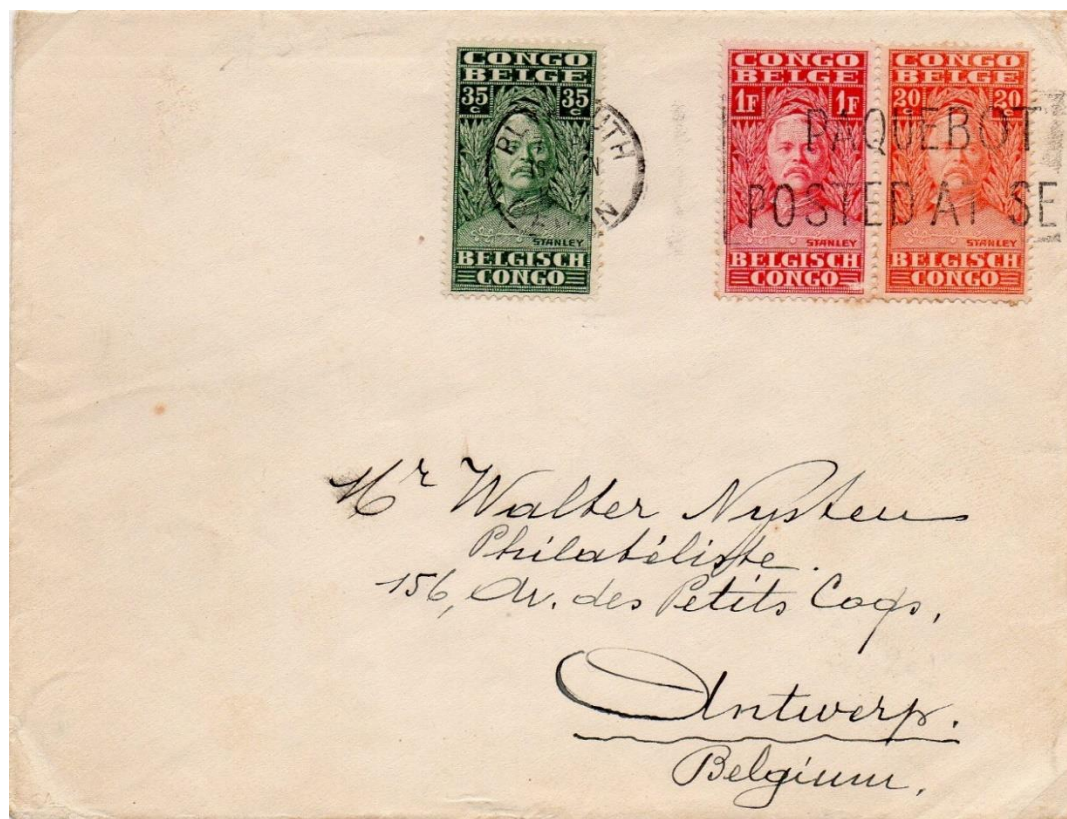 CONGO
BELGE
35 35
C C
STANLEY
BELGISCH
CONGO
CONGO
BELGE
1F 1F
STANLEY
BELGISCH
CONGO
CONGO
BELGE
20 20
C C
STANLEY
BELGISCH
CONGO
PAQUEBOT
POSTED AT SE
Mr Walter Nysten
Philatéliste.
156, Av. des Petits Coqs,
Antwerp.
Belgium.